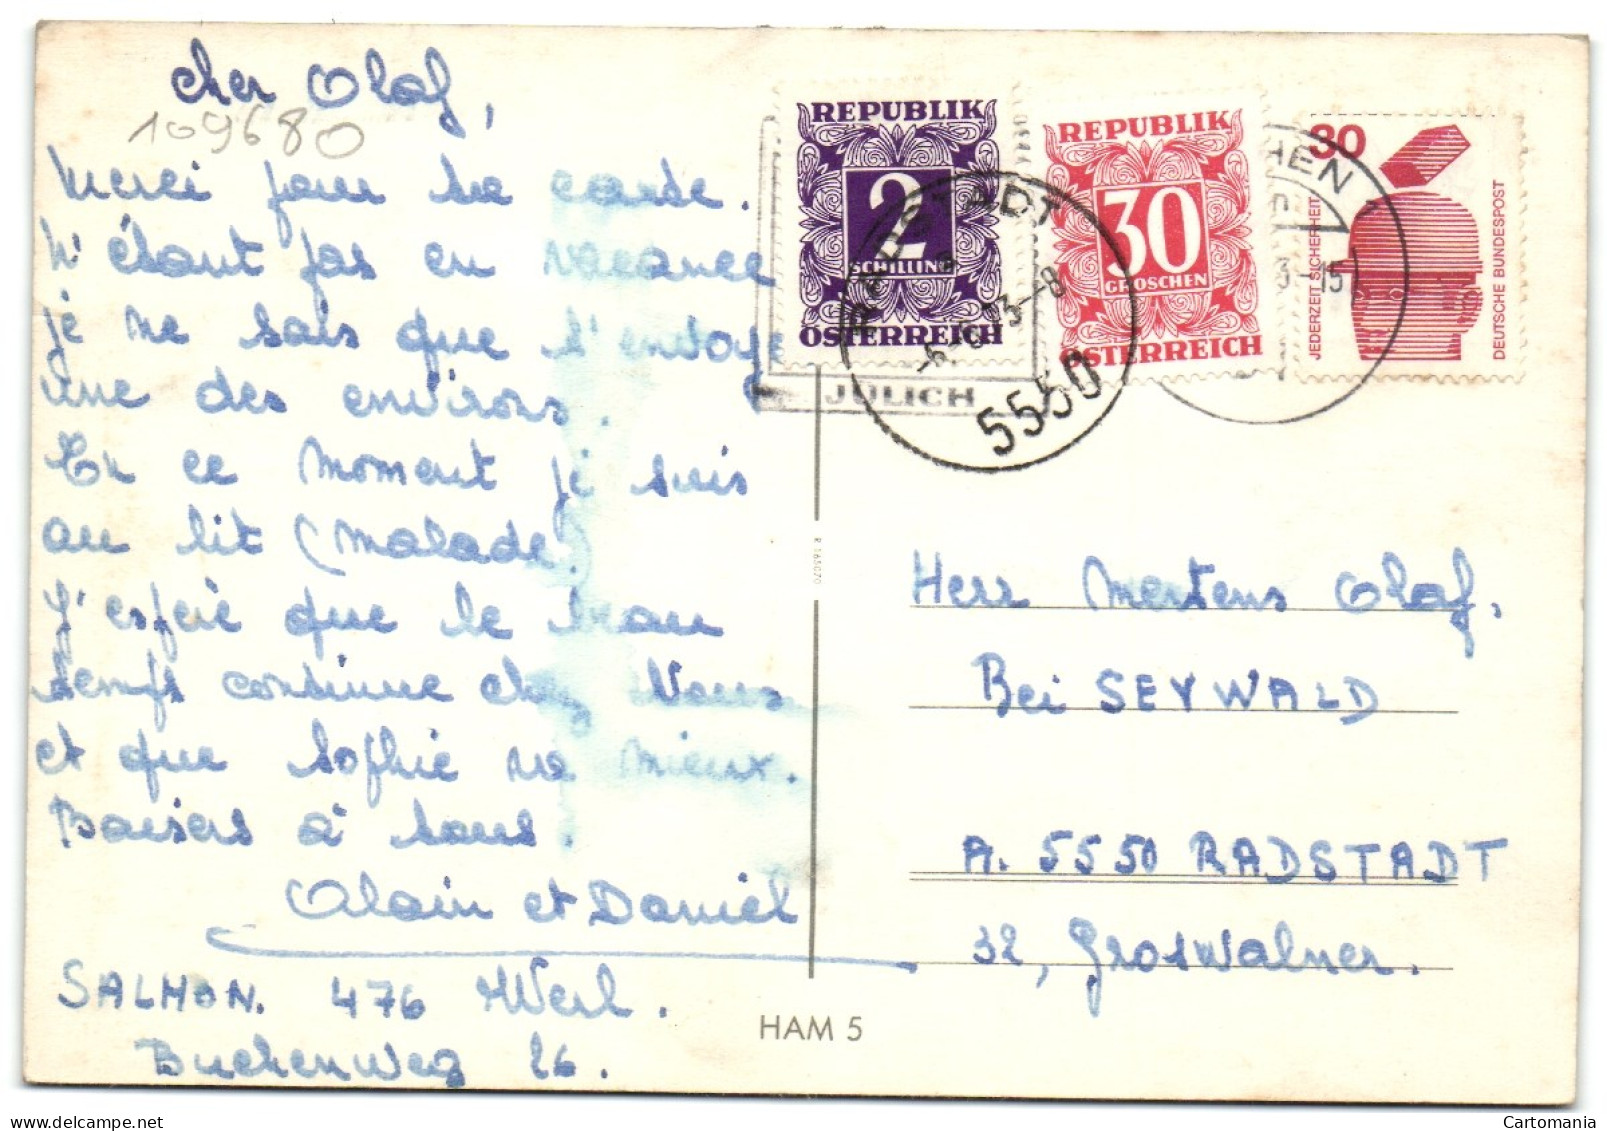 cher Olaf,
109680
Merci pour ta carte.
N'étant pas en vacance
je ne sais que t'envoye
une des environs.
En ce moment je suis
au lit (malade)
J'espère que le beau
temps continue chez Vous
et que Sophie va mieux.
Baisers à tous.
Alain et Daniel
SALMON. 476 Werl.
Buchenweg 26.
REPUBLIK
2
SCHILLING
ÖSTERREICH
REPUBLIK
30
GROSCHEN
ÖSTERREICH
30
JEDERZEIT SICHERHEIT
DEUTSCHE BUNDESPOST
RADSTADT
5550
JÜLICH
HEN
3-15
R 165020
Herr Mertens Olaf.
Bei SEYWALD
A. 5550 RADSTADT
32, Groswalner.
HAM 5
Cartomania